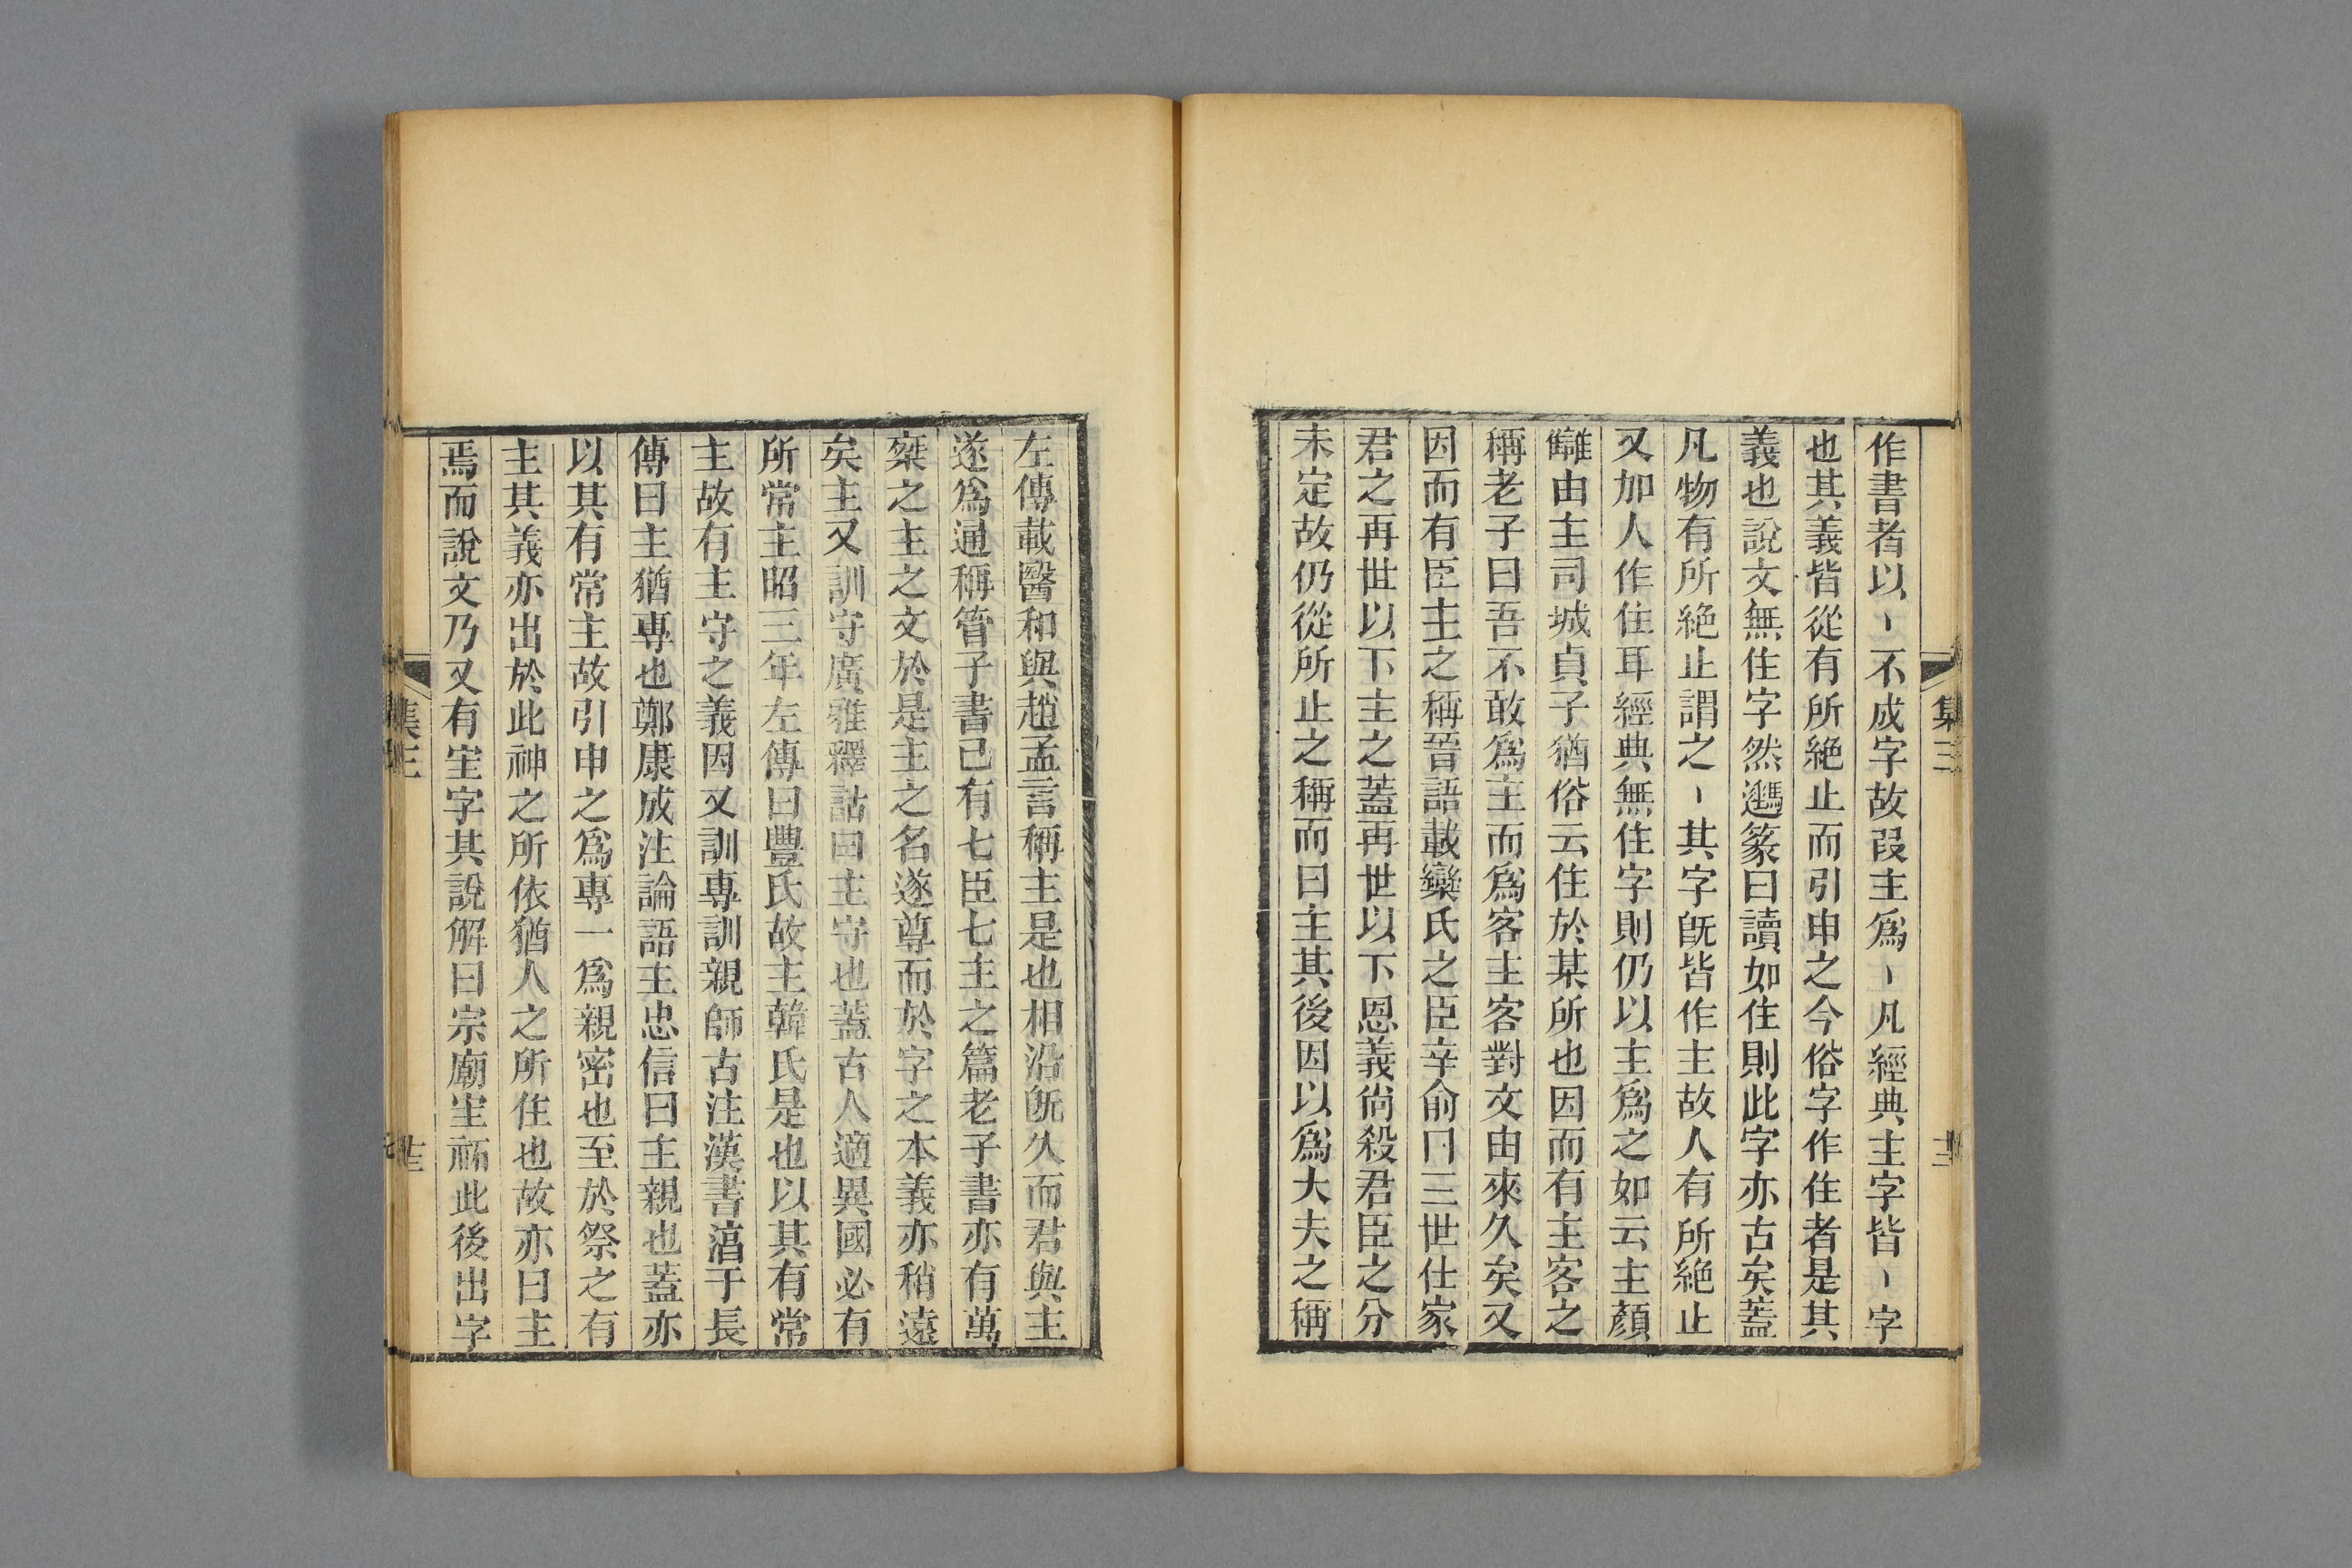 作書者以丶不成字故叚主爲丶凡經典主字皆丶字
也其義皆從有所絶止而引申之今俗字作住者是其
義也說文無住字然遇篆曰讀如住則此字亦古矣蓋
凡物有所絶止謂之丶其字旣皆作主故人有所絶止
又加人作住耳經典無住字則仍以主爲之如云主顏
讎由主司城貞子猶俗云住於某所也因而有主客之
稱老子曰吾不敢爲主而爲客主客對文由來久矣又
因而有臣主之稱晉語載欒氏之臣辛俞曰三世仕家
君之再世以下主之蓋再世以下恩義尙殺君臣之分
未定故仍從所止之稱而曰主其後因以爲大夫之稱
集三
左傳載醫和與趙孟言稱主是也相沿旣久而君與主
遂爲通稱管子書已有七臣七主之篇老子書亦有萬
椉之主之文於是主之名遂尊而於字之本義亦稍遠
矣主又訓守廣雅釋詁曰主守也蓋古人適異國必有
所常主昭三年左傳曰豐氏故主韓氏是也以其有常
主故有主守之義因又訓專訓親師古注漢書淳于長
傳曰主猶專也鄭康成注論語主忠信曰主親也蓋亦
以其有常主故引申之爲專一爲親密也至於祭之有
主其義亦出於此神之所依猶人之所住也故亦曰主
焉而說文乃又有宔字其說解曰宗廟宔祏此後出字
集三